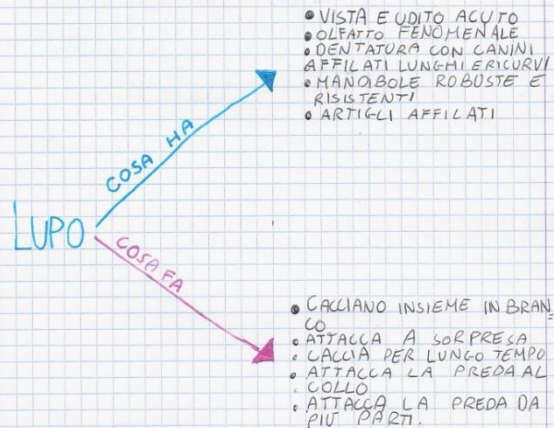 • VISTA E UDITO ACUTO
• OLFATTO FENOMENALE
• DENTATURA CON CANINI
AFFILATI LUNGHI E RICURVI
• MANDIBOLE ROBUSTE E
RISISTENTI
• ARTIGLI AFFILATI
COSA HA
LUPO
COSA FA
• CACCIANO INSIEME IN BRAN=
CO
• ATTACCA A SORPRESA
• CACCIA PER LUNGO TEMPO
• ATTACCA LA PREDA AL
COLLO
• ATTACCA LA PREDA DA
PIÙ PARTI.